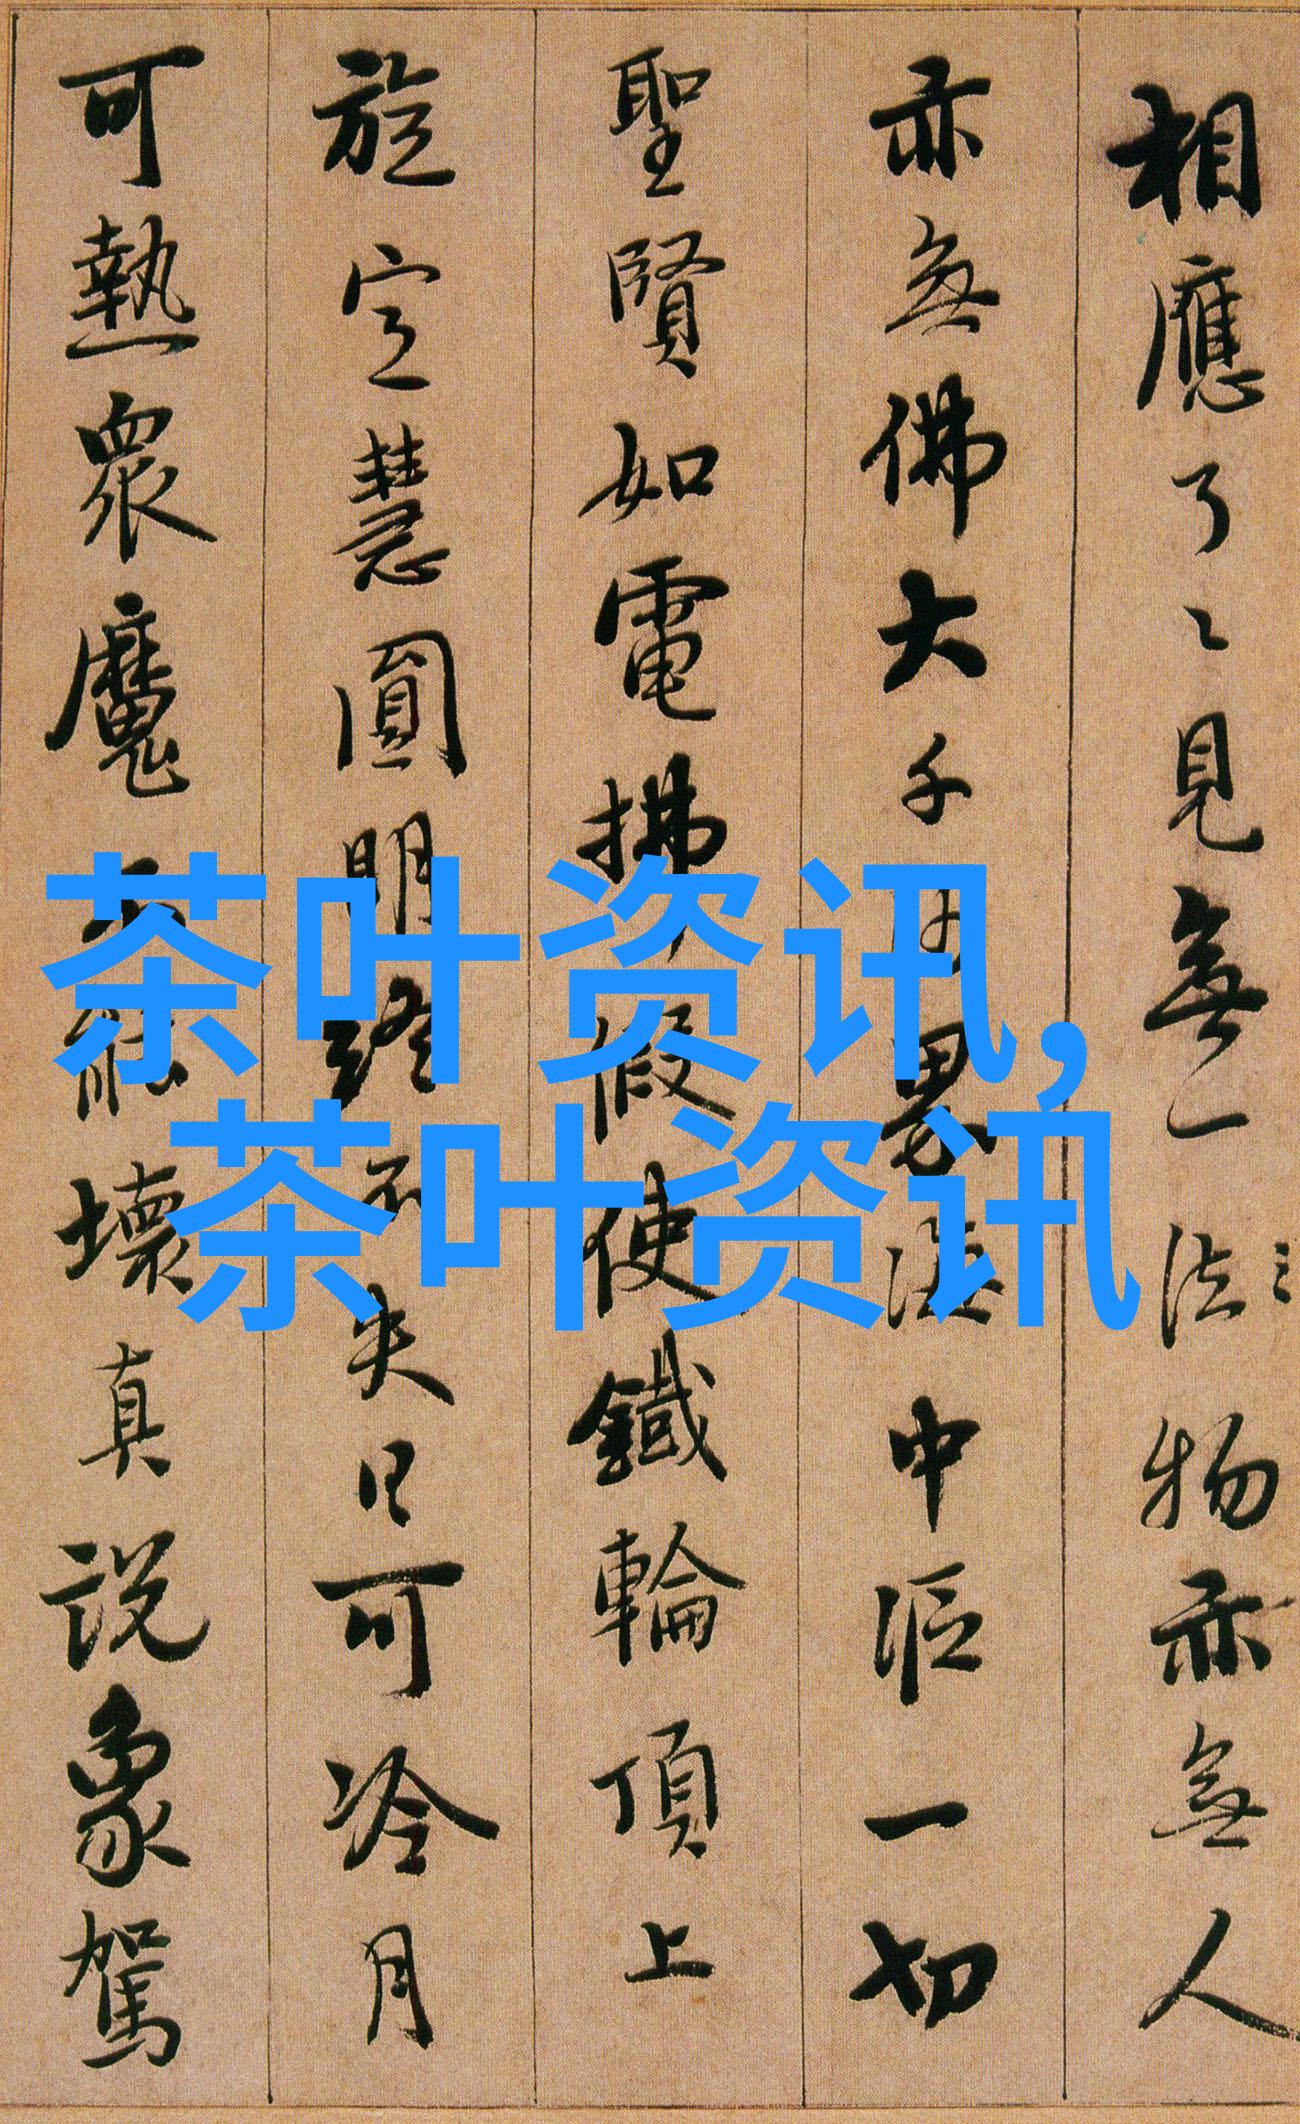 相應了〻見無一法物亦無人
亦無佛大千沙界海中漚一切
聖賢如電拂假使鐵輪頂上
旋定慧圓明終不失日可冷月
可熱眾魔不能壞真說象駕
茶叶资讯,
茶叶资讯